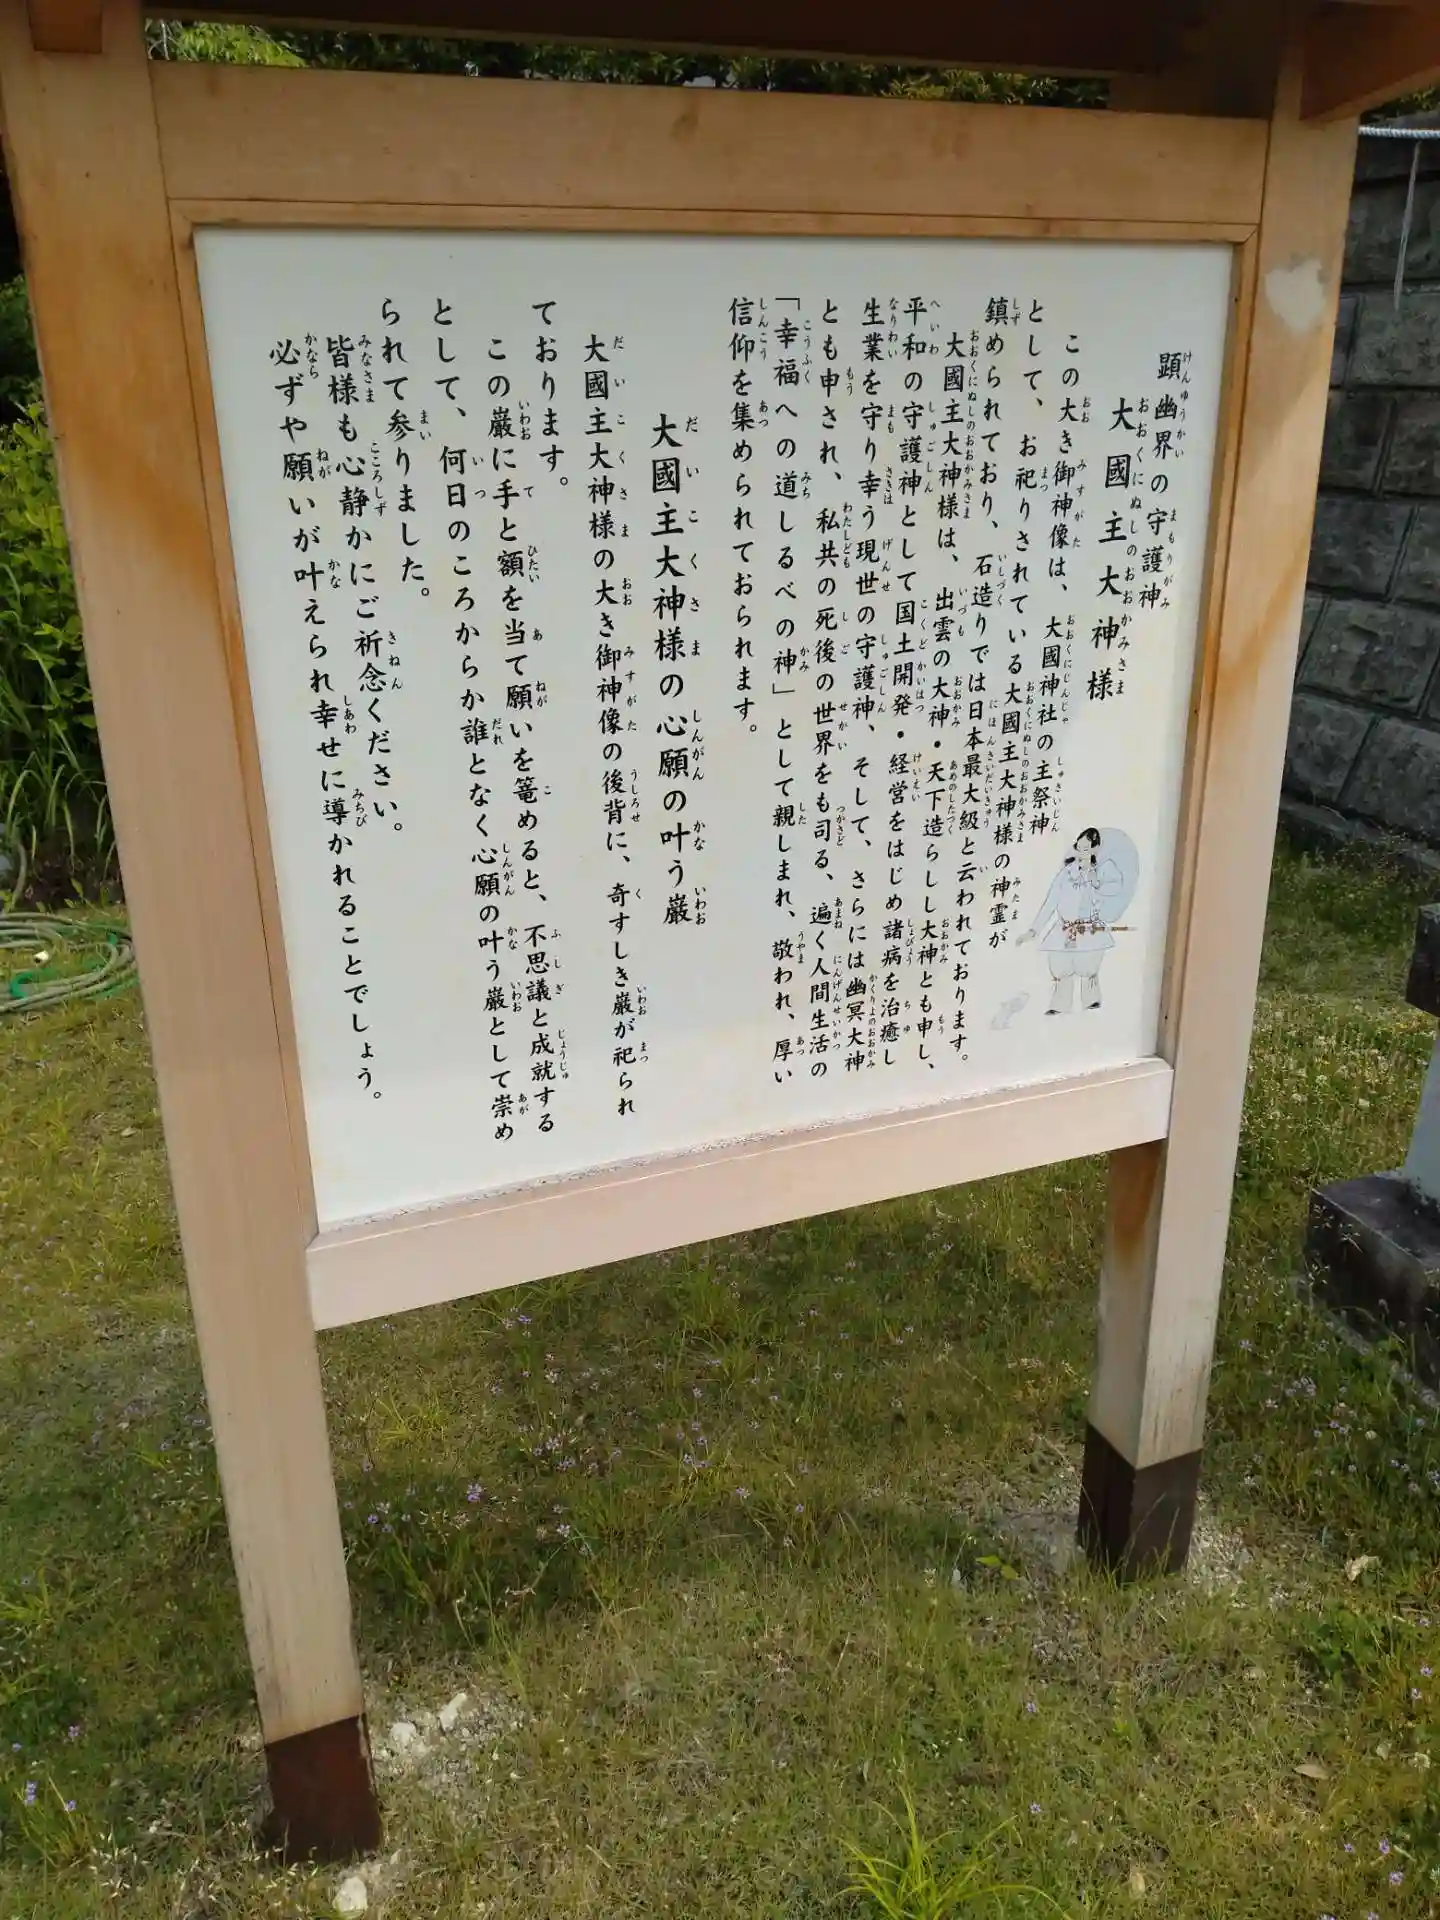 顕幽界の守護神
大國主大神様
この大き御神像は、大國神社の主祭神
として、お祀りされている大國主大神様の神霊が
鎮められており、石造りでは日本最大級と云われております。
大國主大神様は、出雲の大神・天下造らしし大神とも申し、
平和の守護神として国土開発・経営をはじめ諸病を治癒し
生業を守り幸う現世の守護神、そして、さらには幽冥大神
とも申され、私共の死後の世界をも司る、遍く人間生活の
「幸福への道しるべの神」として親しまれ、敬われ、厚い
信仰を集められております。
大國主大神様の心願の叶う巌
大國主大神様の大き御神像の後背に、奇すしき巌が祀られ
ております。
この巌に手と額を当て願いを篭めると、不思議と成就する
として、何日のころからか誰となく心願の叶う巌として崇め
られて参りました。
皆様も心静かにご祈念ください。
必ずや願いが叶えられ幸せに導かれることでしょう。